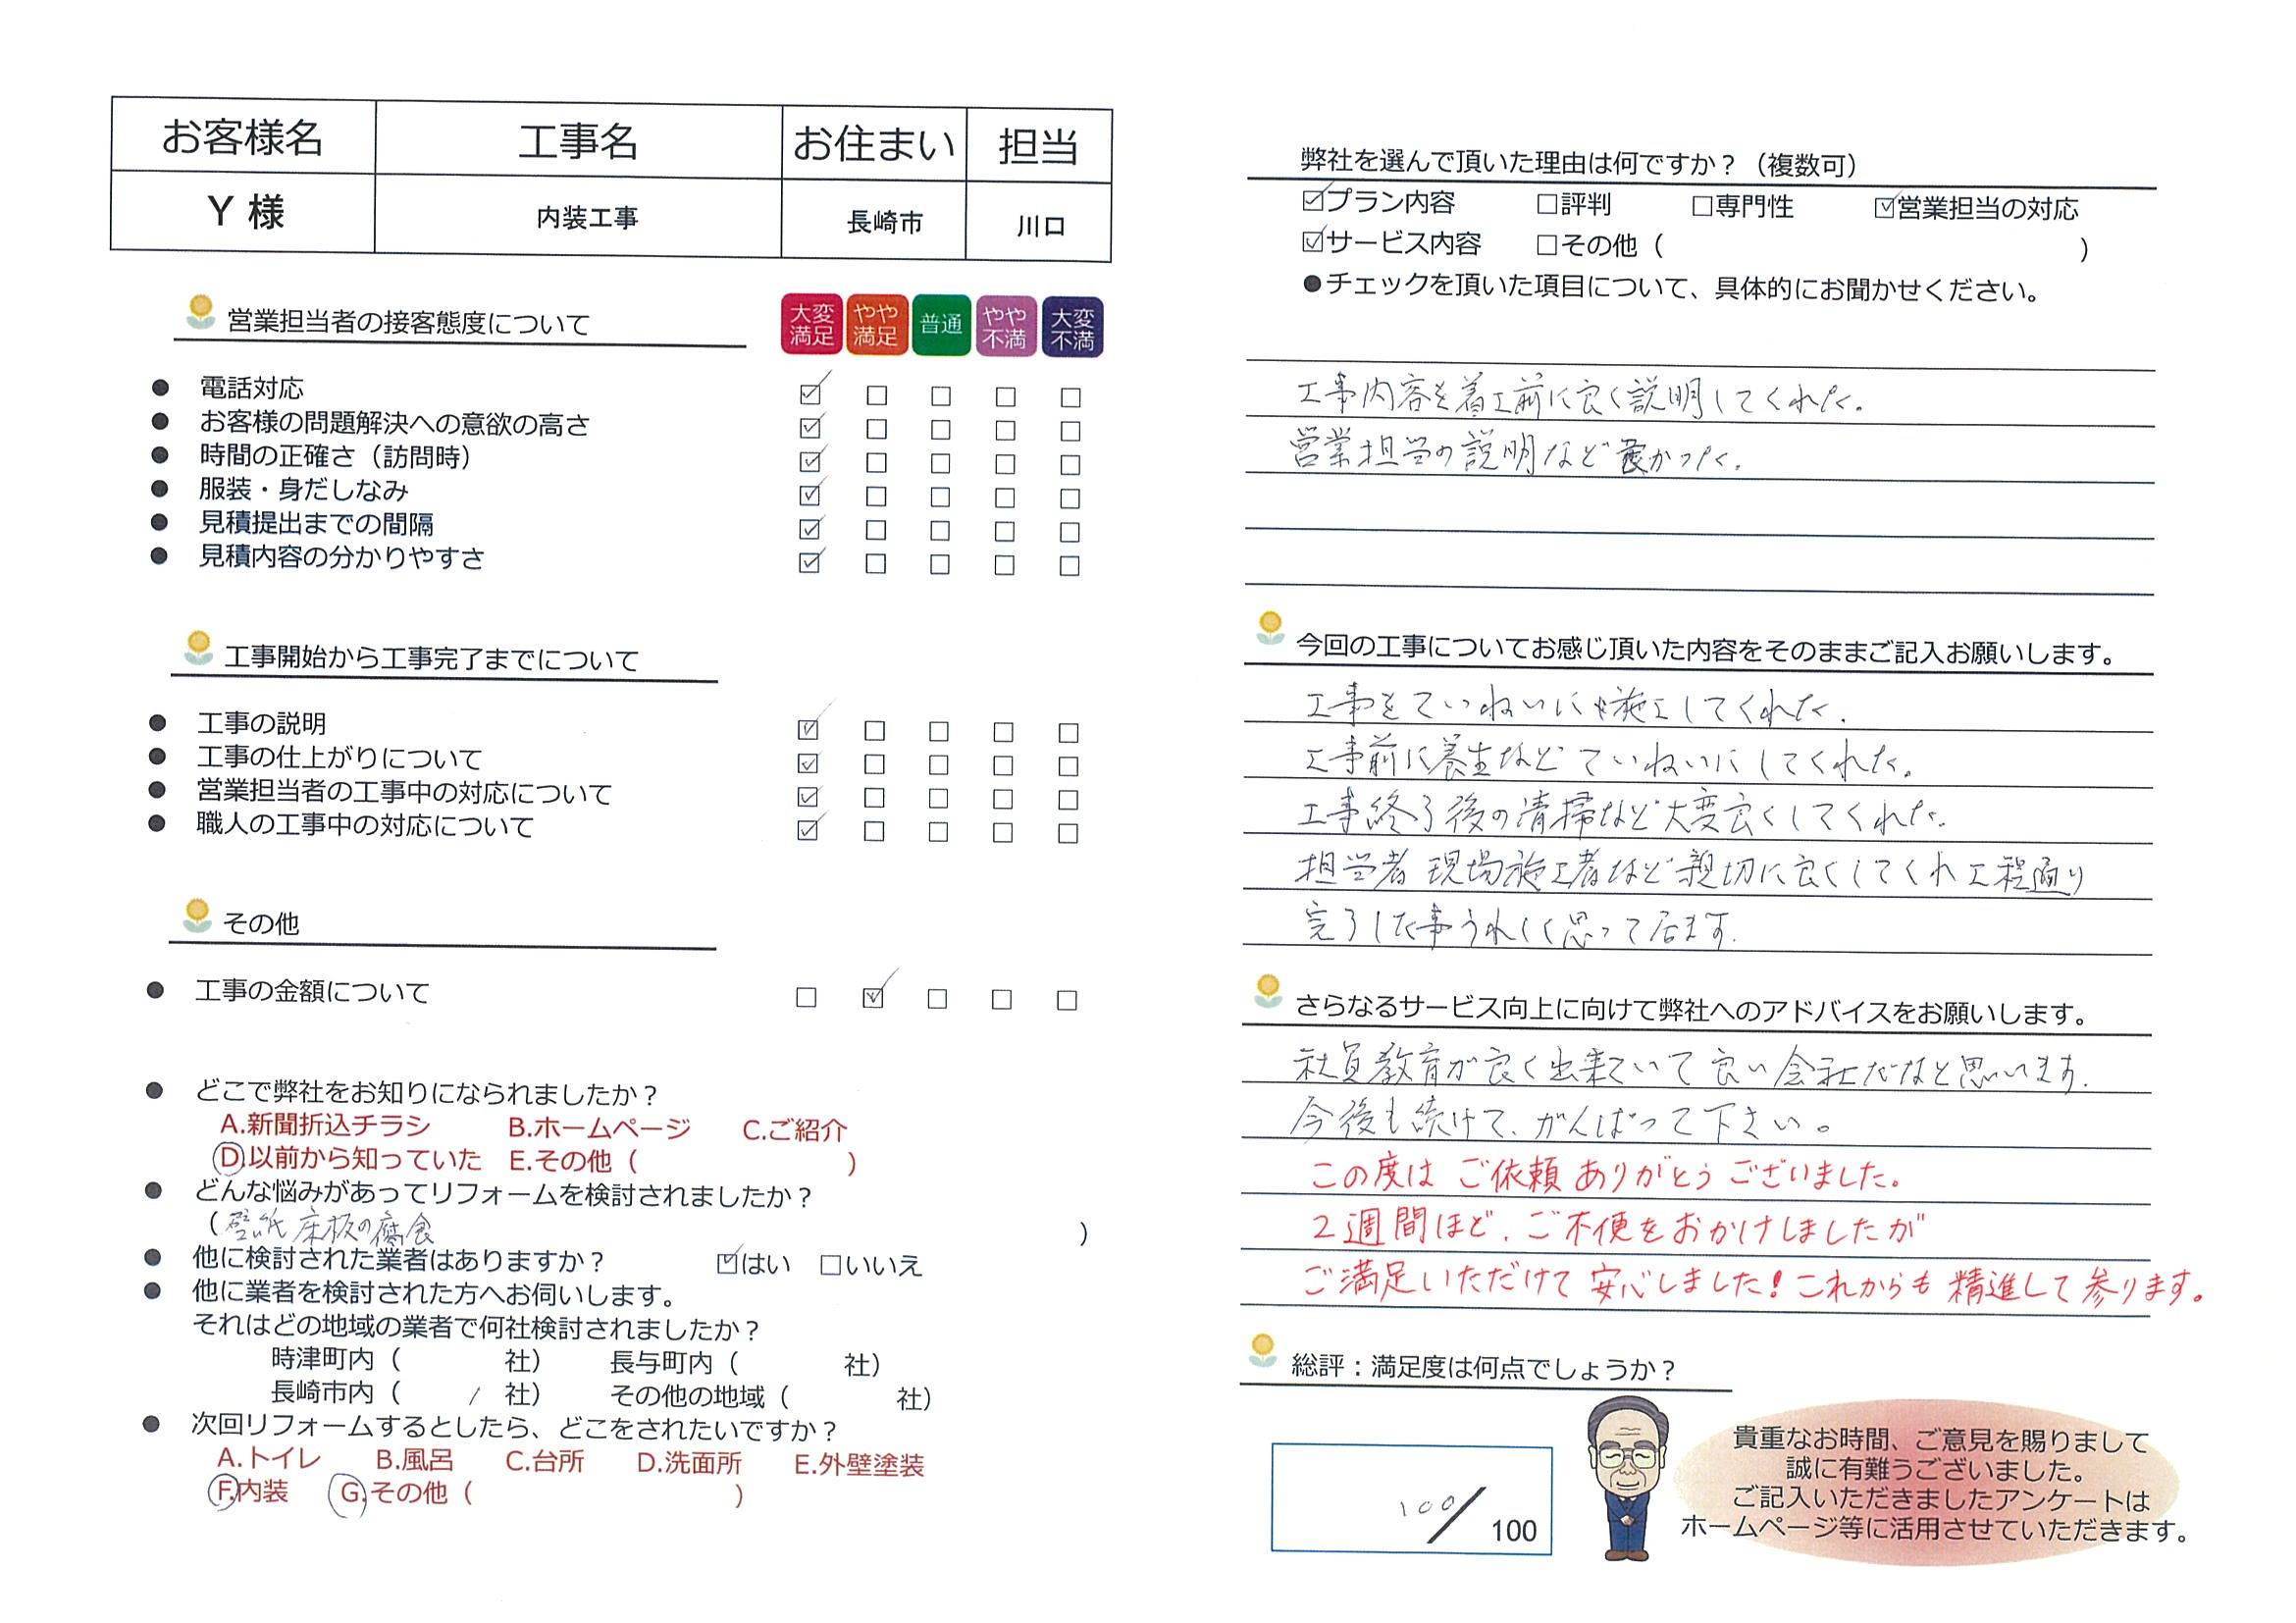 お客様名 工事名 お住まい 担当
Y 様 内装工事 長崎市 川口
営業担当者の接客態度について
大変満足 やや満足 普通 やや不満 大変不満
● 電話対応 ☑ □ □ □ □
● お客様の問題解決への意欲の高さ ☑ □ □ □ □
● 時間の正確さ（訪問時） ☑ □ □ □ □
● 服装・身だしなみ ☑ □ □ □ □
● 見積提出までの間隔 ☑ □ □ □ □
● 見積内容の分かりやすさ ☑ □ □ □ □
工事開始から工事完了までについて
● 工事の説明 ☑ □ □ □ □
● 工事の仕上がりについて ☑ □ □ □ □
● 営業担当者の工事中の対応について ☑ □ □ □ □
● 職人の工事中の対応について ☑ □ □ □ □
その他
● 工事の金額について □ ☑ □ □ □
● どこで弊社をお知りになられましたか？
A.新聞折込チラシ B.ホームページ C.ご紹介
D.以前から知っていた E.その他（ ）
● どんな悩みがあってリフォームを検討されましたか？
（壁紙 床板の腐食 ）
● 他に検討された業者はありますか？ ☑はい □いいえ
● 他に業者を検討された方へお伺いします。
それはどの地域の業者で何社検討されましたか？
時津町内（ 社） 長与町内（ 社）
長崎市内（ / 社） その他の地域（ 社）
● 次回リフォームするとしたら、どこをされたいですか？
A.トイレ B.風呂 C.台所 D.洗面所 E.外壁塗装
F.内装 G.その他（ ）
弊社を選んで頂いた理由は何ですか？（複数可）
☑プラン内容 □評判 □専門性 ☑営業担当の対応
☑サービス内容 □その他（ ）
●チェックを頂いた項目について、具体的にお聞かせください。
工事内容を着工前に良く説明してくれた。
営業担当の説明など良かった。
今回の工事についてお感じ頂いた内容をそのままご記入お願いします。
工事をていねいに施工してくれた。
工事前に養生などていねいにしてくれた。
工事終了後の清掃など大変良くしてくれた。
担当者 現場施工者など親切に良くしてくれ工程通り
完了した事うれしく思って居ます。
さらなるサービス向上に向けて弊社へのアドバイスをお願いします。
社員教育が良く出来ていて良い会社だなと思います。
今後も続けて、がんばって下さい。
この度は ご依頼 ありがとうございました。
2週間ほど、ご不便をおかけしましたが
ご満足いただけて 安心しました！これからも 精進して 参ります。
総評：満足度は何点でしょうか？
100/100
貴重なお時間、ご意見を賜りまして
誠に有難うございました。
ご記入いただきましたアンケートは
ホームページ等に活用させていただきます。